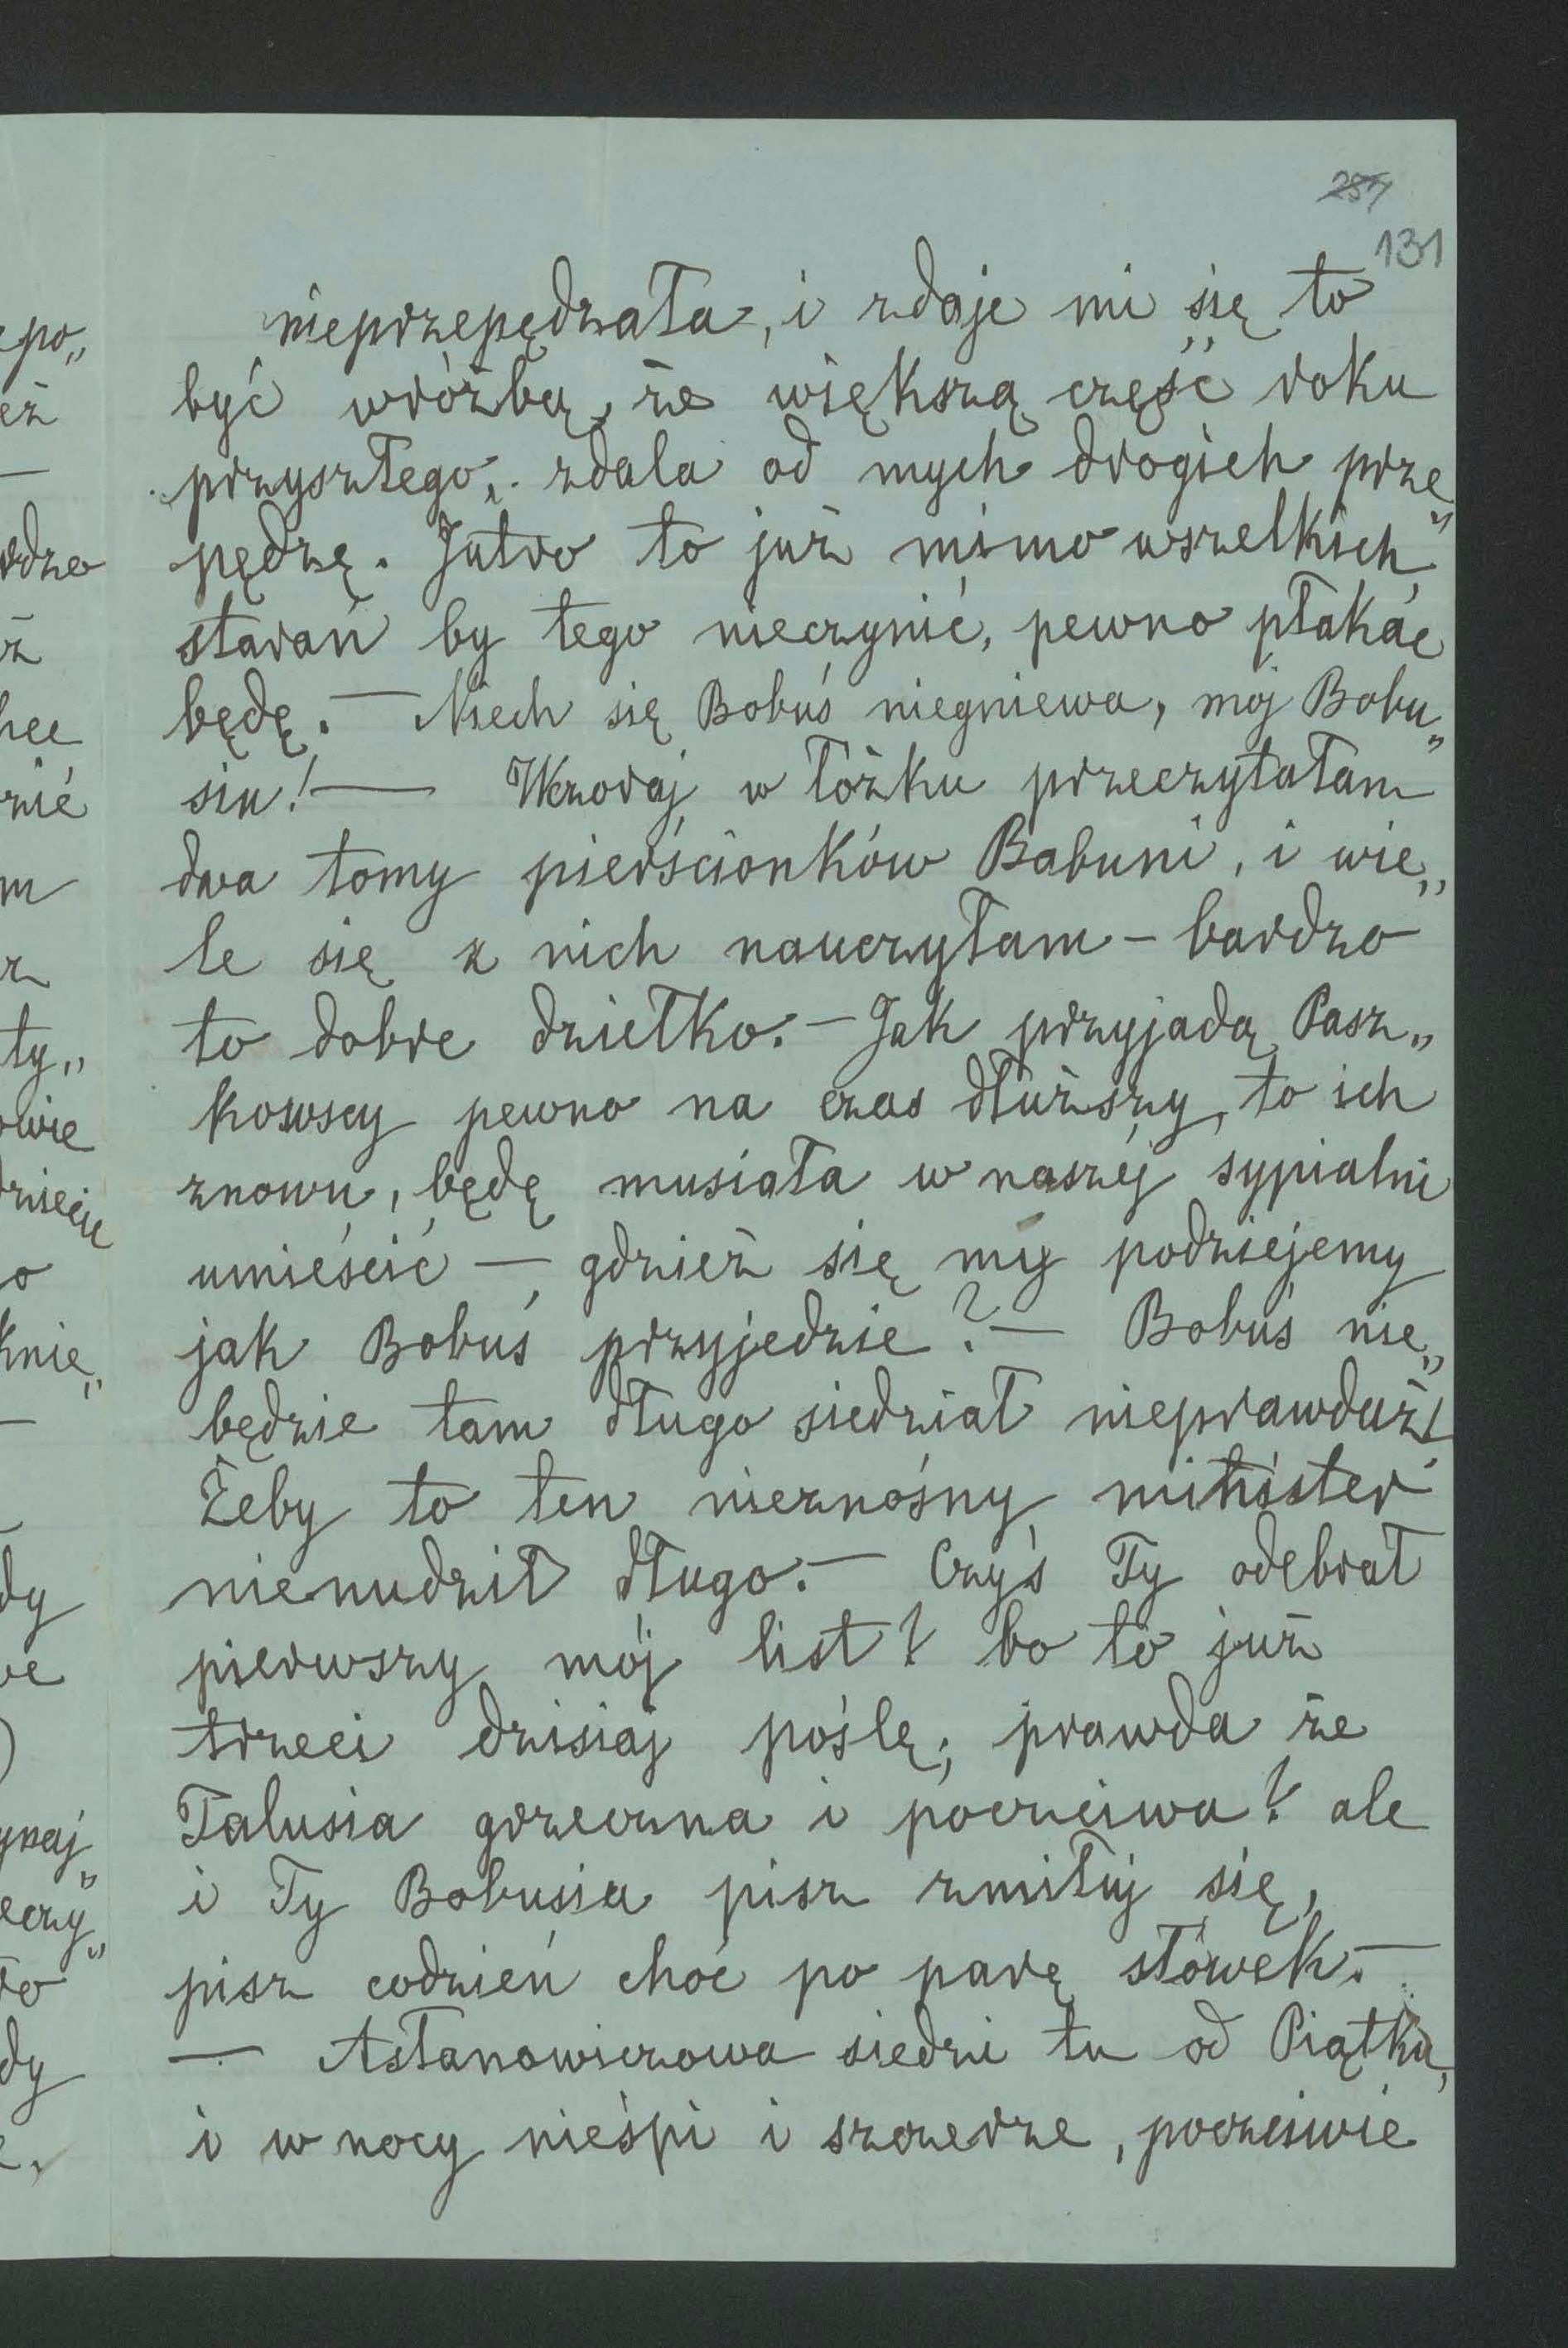 257
131
nieprzepędzała, i zdaje mi się to
być wróżbą, że większą część roku
przyszłego, zdala od mych drogich prze„
pędzę. Jutro to już mimo wszelkich
starań by tego nieczynić, pewno płakać
będę. — Niech się Bobuś niegniewa, mój Bobu„
siu! — Wczoraj w łóżku przeczytałam
dwa tomy pierścionków Babuni, i wie„
le się z nich nauczyłam – bardzo
to dobre dziełko. – Jak przyjadą Pasz„
kowscy pewno na czas dłuższy, to ich
znowu, będę musiała w naszéj sypialni
umieścić —, gdzież się my podziejemy
jak Bobuś przyjedzie? — Bobuś nie„
będzie tam długo siedział nieprawdaż!
Żeby to ten nieznośny minister
nienudził długo. — Czyś Ty odebrał
pierwszy mój list? bo to już
trzeci dzisiaj poślę; prawda że
Talusia grzeczna i poczciwa? ale
i Ty Bobusia pisz zmiłuj się,
pisz codzień choć po parę słówek. —
— Astanowiczowa siedzi tu od Piątku,
i w nocy nieśpi i szczerze, poczciwie
po„
eż
—
rdzo
ż
hce
m
z
ty„
owie
o
knie„
—
dy
ynaj„
eczy„
to
dy